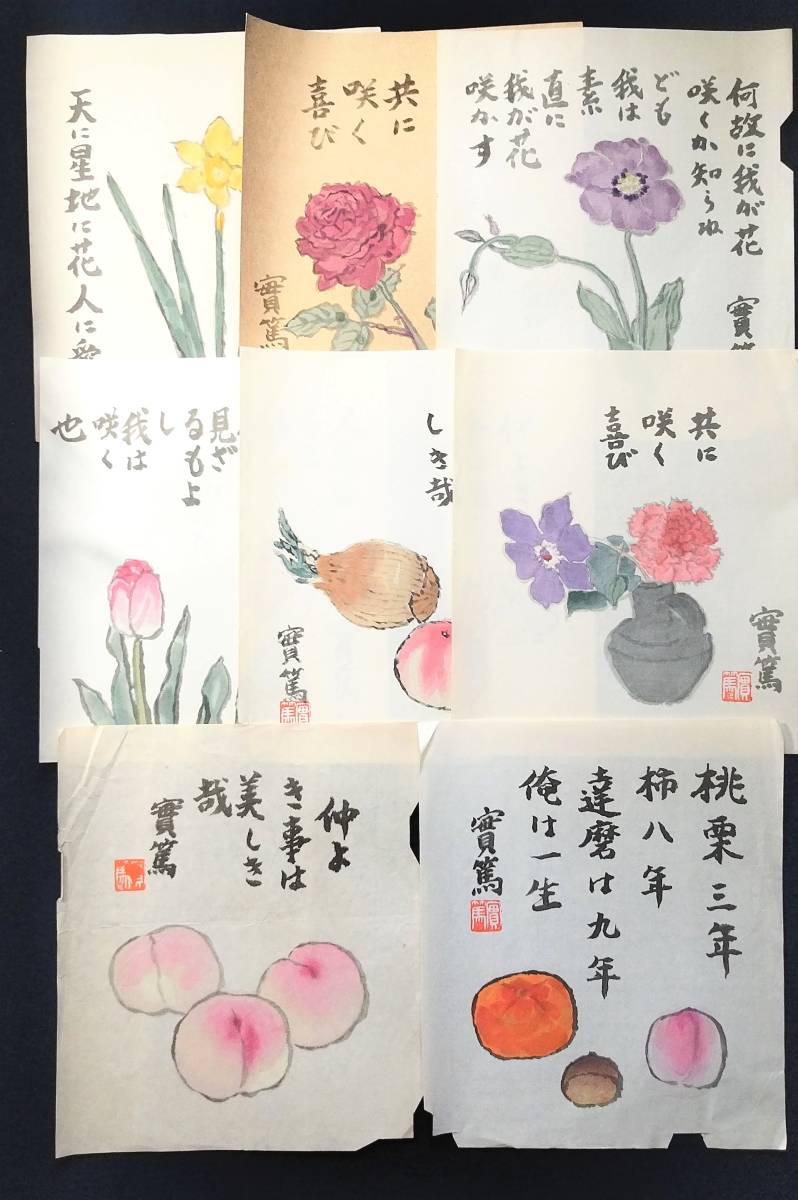 天に星地に花人に愛
共に
咲く
喜び
實篤
何故に我が花
咲くか知らね
ども
我は
素
直に
我が花
咲かす
實篤
見ざ
るもよ
し
我は
咲く
也
しき哉
實篤
實篤
共に
咲く
喜び
實篤
實篤
仲よ
き事は
美しき
哉
實篤
桃栗三年
柿八年
達磨は九年
俺は一生
實篤
實篤